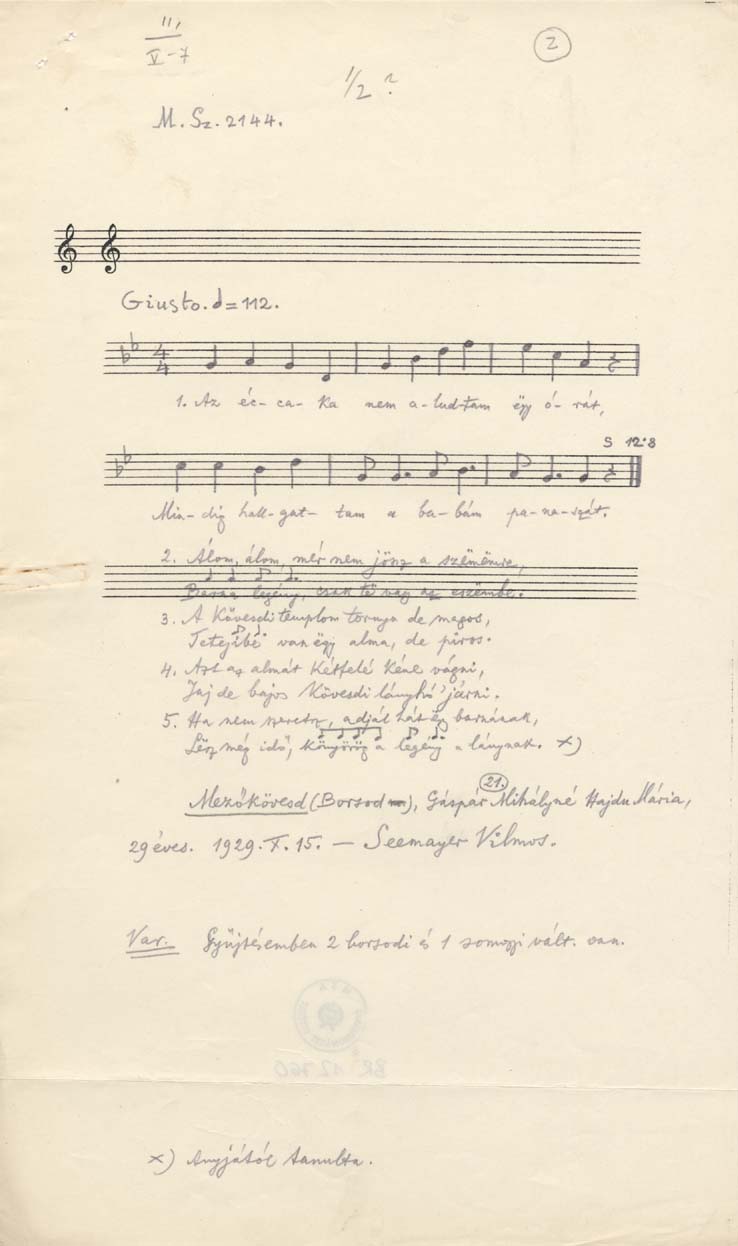 II,
V-7
2
1/2 ?
M. Sz. 2144.
Giusto. 𝅗𝅥 = 112.
4
4
1. Az éc-ca-ka nem a-lud-tam ëgy ó-rát,
S 12·8
Min-dig hall-gat-tam a ba-bám pa-na-szát.
2. Álom, álom, mér nem jösz a szëmëmre,
Barna legény, csak të vagy az eszëmbe.
3. A Kövesdi templom tornya de magos,
Tetejibe van ëgy alma, de piros.
4. Azt az almát Kétfelé Kéne vágni,
Jaj de bajos Kövesdi lányhó' járni.
5. Ha nem szeretsz, adjál hát ëgy barnának,
Lësz még idő, könyörög a legény a lánynak. x)
21.
Mezőkövesd (Borsod), Gáspár Mihályné Hajdu Mária,
29 éves. 1929. X. 15. — Seemayer Vilmos.
Var. Gyűjtésemben 2 borsodi és 1 somogyi vált. van.
BR 12760
x) Anyjától tanulta.